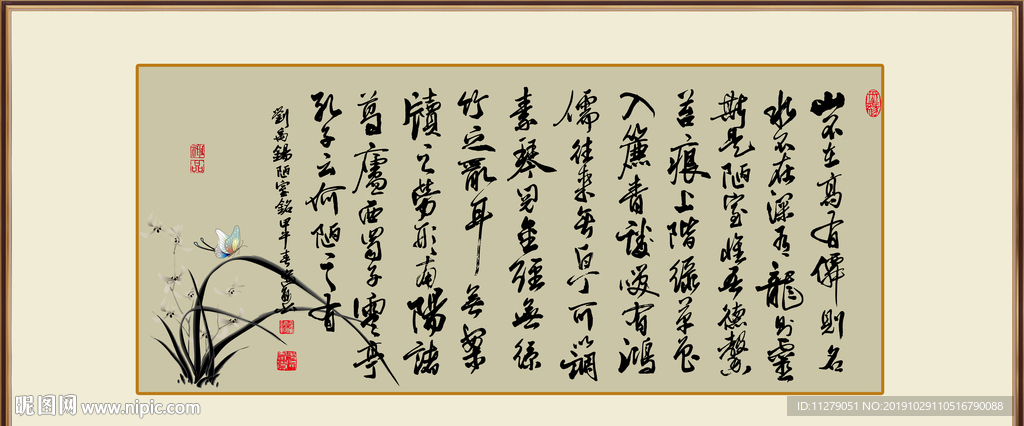 山不在高有僊則名
水不在深有龍則靈
斯是陋室惟吾德馨
苔痕上階綠草色
入簾青談笑有鴻
儒往來無白丁可以調
素琴閱金經無絲
竹之亂耳無案
牘之勞形南陽諸
葛廬西蜀子雲亭
孔子云何陋之有
劉禹錫陋室銘甲午春
昵图网 www.nipic.com
ID:11279051 NO:20191029110516790088